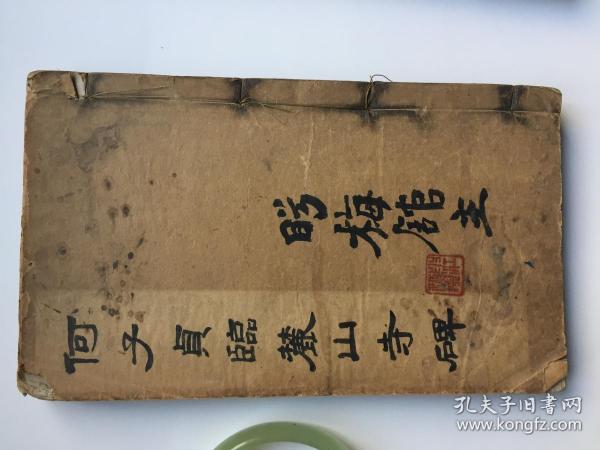 何子貞臨麓山寺碑
盼梅館主
孔夫子旧书网
www.kongfz.com